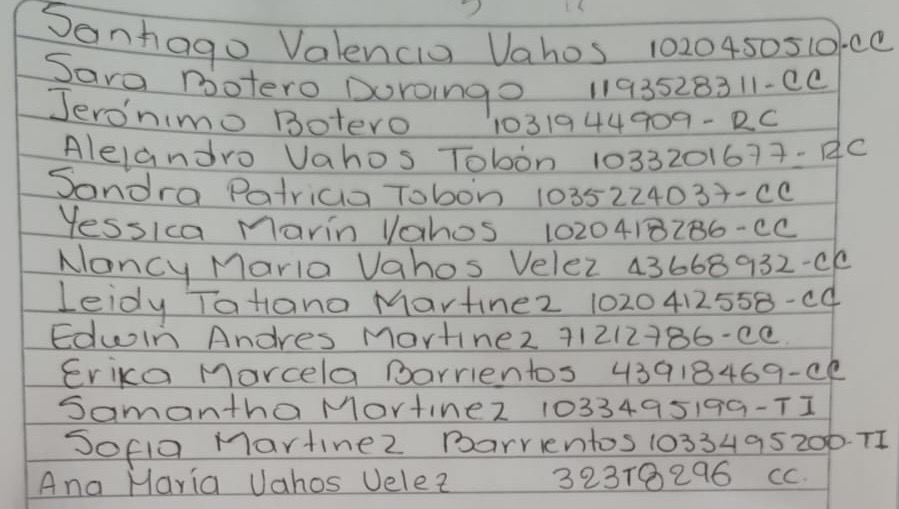 Santiago Valencia Vahos 1020450510-CC
Sara Botero Durango 1193528311-CC
Jerónimo Botero 1031944909-RC
Alejandro Vahos Tobón 1033201677-RC
Sandra Patricia Tobón 1035224037-CC
Yessica Marín Vahos 1020418286-CC
Nancy Maria Vahos Velez 43668932-CC
Leidy Tatiana Martinez 1020412558-CC
Edwin Andres Martinez 71212786-CC.
Erika Marcela Barrientos 43918469-CC
Samantha Martinez 1033495199-TI
Sofia Martinez Barrientos 1033495200-TI
Ana María Vahos Velez CC.